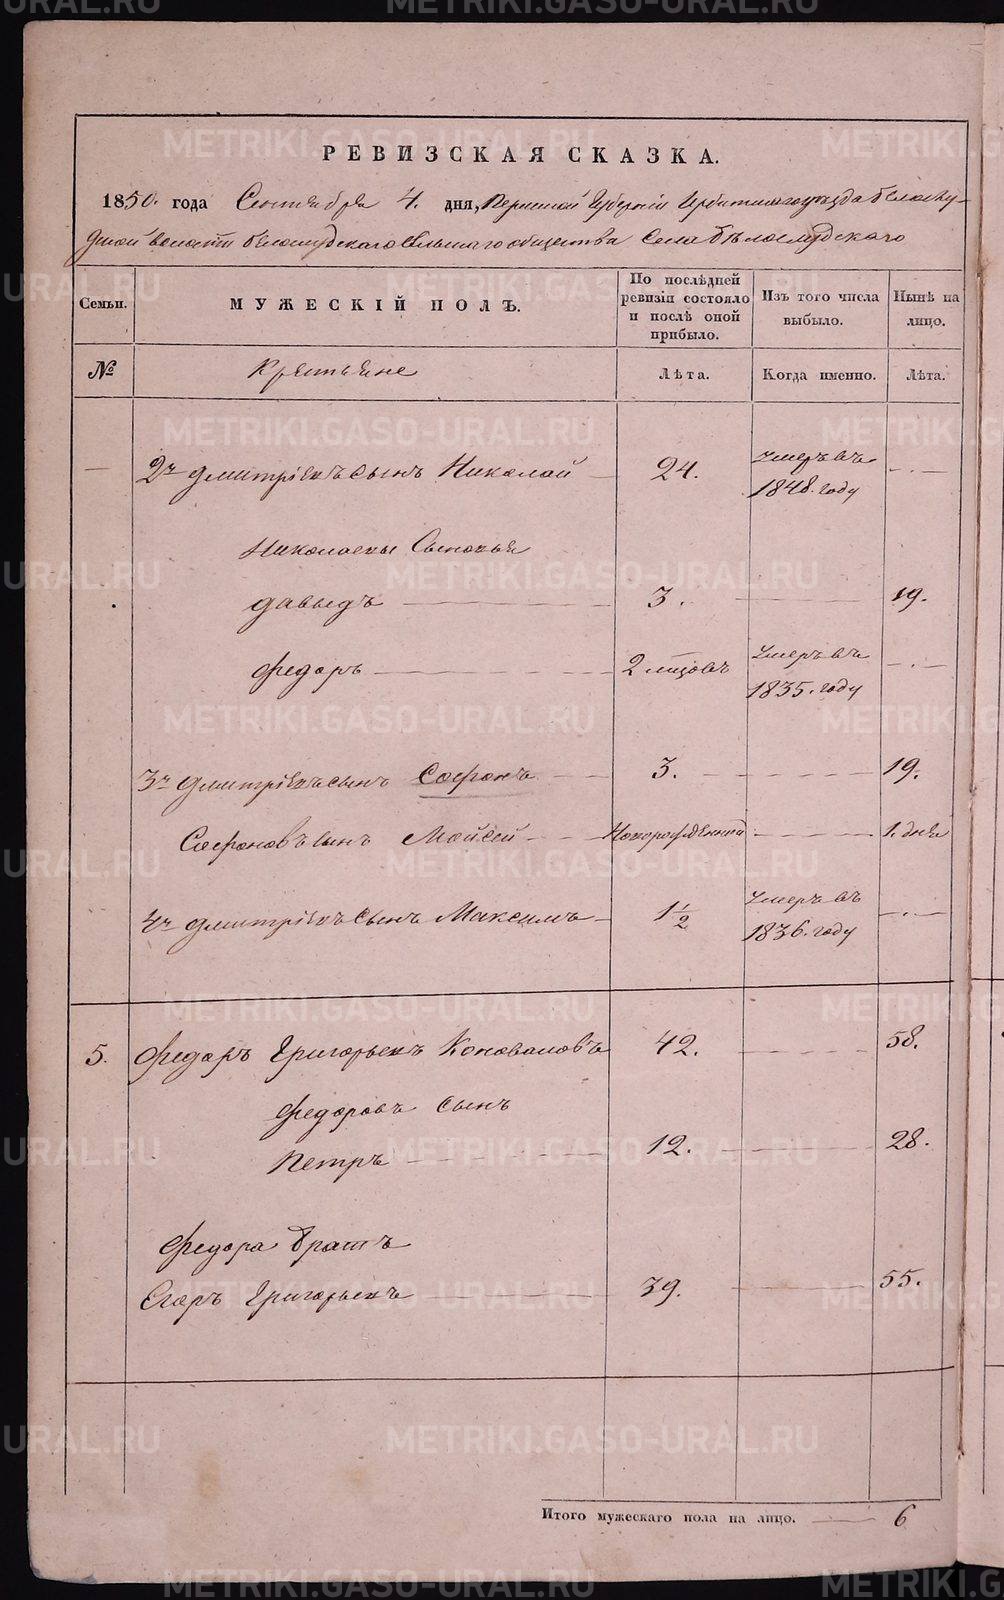 РЕВИЗСКАЯ СКАЗКА.
1850. года Сентября 4. дня, Пермской Губернiи Ирбитскаго уѣзда Бѣлослу-
дской волости Бѣлослудскаго Сельскаго общества Села Бѣлослудскаго
Семьи.
МУЖЕСКІЙ ПОЛЪ.
По послѣдней ревизіи состояло и послѣ оной прибыло.
Изъ того числа выбыло.
Нынѣ на лицо.
№ Крестьяне Лѣта. Когда именно. Лѣта.
2й Дмитріевъ сынъ Николай 24. умеръ въ 1848. году
Николаевы Сыновья
Давыдъ 3. 19.
Федоръ 2 мѣсяцовъ умеръ въ 1835. году
3й Дмитріевъ сынъ Софонъ 3. 19.
Софоновъ сынъ Мойсей Новорожденный 1. дня
4й Дмитріевъ сынъ Максимъ 1½ умеръ въ 1836. году
5. Федоръ Григорьевъ Коноваловъ 42. 58.
Федоровъ сынъ
Петръ 12. 28.
Федора братъ
Егоръ Григорьевъ 39. 55.
Итого мужескаго пола на лицо. 6
METRIKI.GASO-URAL.RU